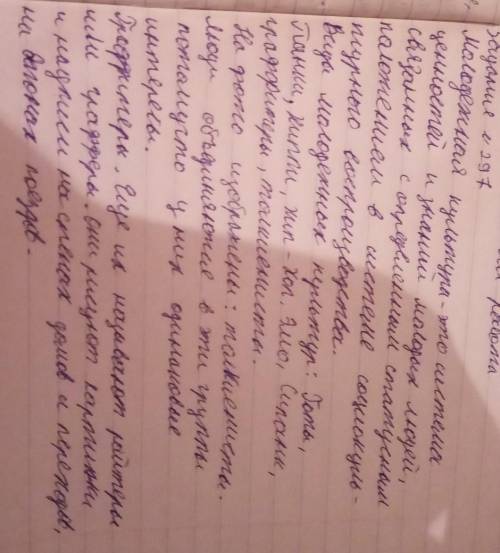 Задание № 297
Молодежная культура - это система
ценностей и знаний молодых людей,
связанных с определенным статусным
положением в системе социокуль-
турного воспроизводства.
Виды молодежных культур: Готы,
Панки, хиппи, хип-хоп, эмо,
граффитеры, толкиенисты.
На фото изображены: толкиенисты.
Люди объединяются в эти группы
потому что у них одинаковые
интересы.
Граффитеры. Еще их называют райтеры
или графферы. Они рисуют картинки
и надписи на стенах домов и переходов,
на вагонах поездов.